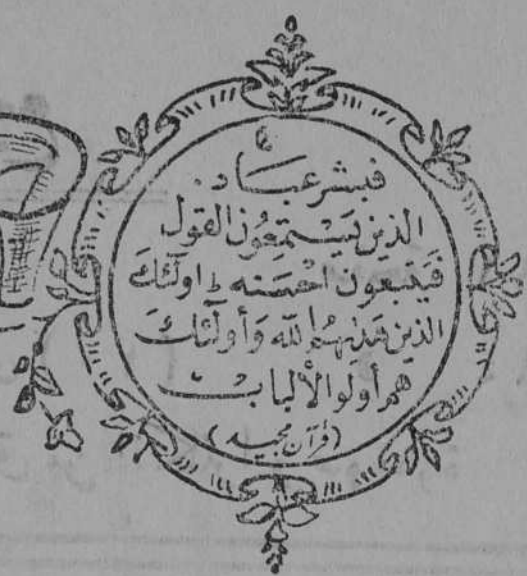 فبشر عباد
الذين يَسْتَمِعُون القول
فَيَتبعون احْسَنه ط اولٰئكَ
الذين هَديٰهُم الله وَأولٰئكَ
هم أولو الألباب
(قرآن مجيد)